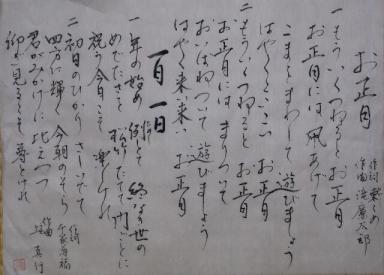 お正月
作詞 東くめ
作曲 滝廉太郎
一 もういくつねるとお正月
お正月には凧あげて
こまをまわして遊びましょう
はやくこいこいお正月
二 もういくつねるとお正月
お正月にはまりついて
おいばねついて遊びましょう
はやく来い来いお正月
一月一日
一 年の始めの 例とて 終なき世の
めでたさを 松竹たてて 門ごとに
祝う今日こそ 楽しけれ
二 初日のひかり さしいでて
四方に輝く 今朝のそら
君がみかげに 比えつつ
仰ぎ見るこそ 尊とけれ
作詞 千家尊福
作曲 上真行